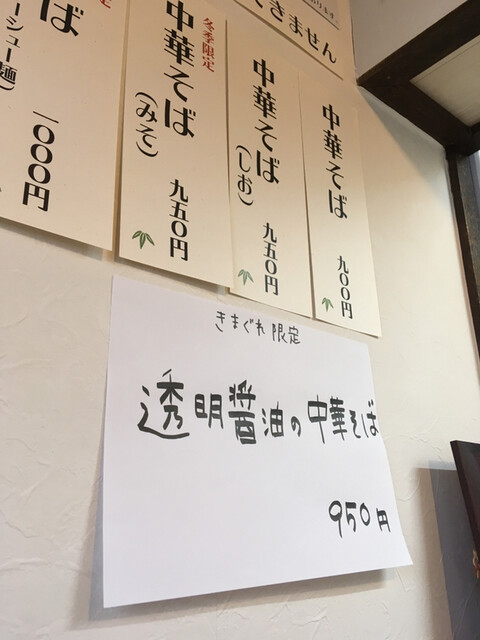 きません
中華そば
九〇〇円
中華そば
(しお)
九五〇円
冬季限定
中華そば
(みそ)
九五〇円
ば
シュー麺)
一〇〇〇円
きまぐれ限定
透明醤油の中華そば
950円